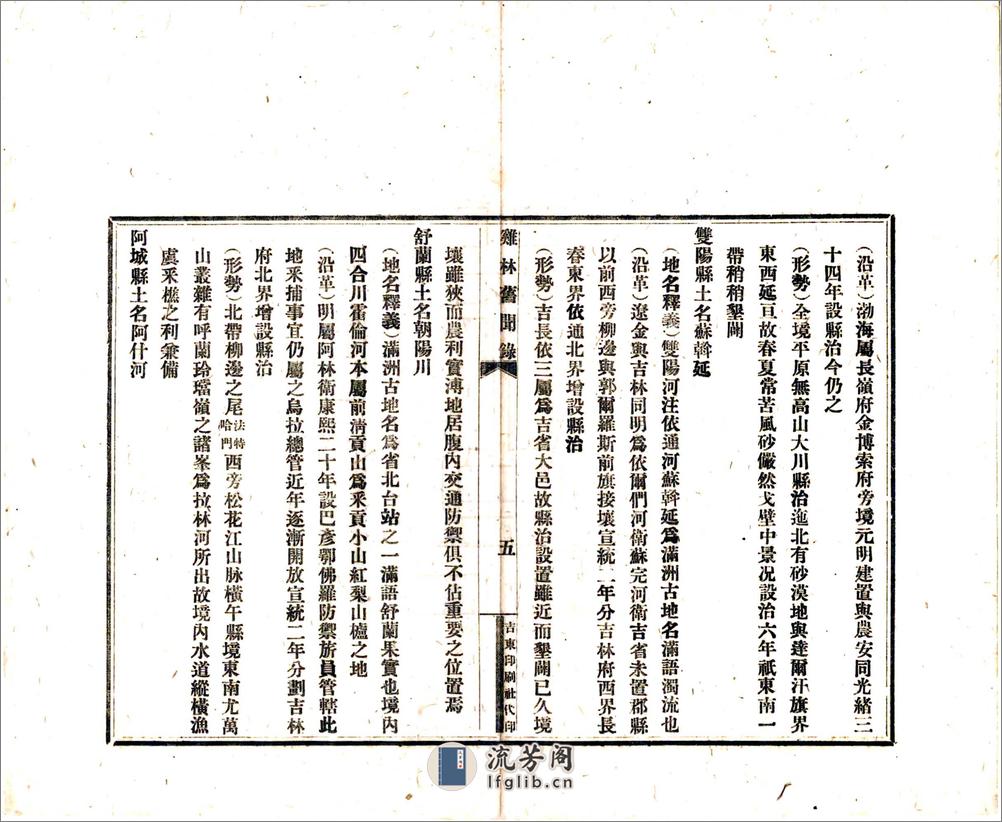 （沿革）渤海屬長嶺府金博索府旁境元明建置與農安同光緒三
十四年設縣治今仍之
（形勢）全境平原無高山大川縣治迤北有砂漠地與達爾汗旗界
東西延亘故春夏常苦風砂儼然戈壁中景况設治六年祇東南一
帶稍稍墾闢
雙陽縣土名蘇斡延
（地名釋義）雙陽河注依通河蘇斡延爲滿洲古地名滿語濁流也
（沿革）遼金與吉林同明爲依爾們河衛蘇完河衛吉省未置郡縣
以前西旁柳邊與郭爾羅斯前旗接壤宣統二年分吉林府西界長
春東界依通北界增設縣治
（形勢）吉長依三屬爲吉省大邑故縣治設置雖近而墾闢已久境
雞林舊聞錄
五
吉東印刷社代印
壤雖狹而農利實溥地居腹內交通防禦俱不佔重要之位置焉
舒蘭縣土名朝陽川
（地名釋義）滿洲古地名爲省北台站之一滿語舒蘭果實也境內
四合川霍倫河本屬前清貢山爲采貢小山紅梨山櫨之地
（沿革）明屬阿林衛康熙二十年設巴彥鄂佛羅防禦旂員管轄此
地采捕事宜仍屬之烏拉總管近年逐漸開放宣統二年分劃吉林
府北界增設縣治
（形勢）北帶柳邊之尾法特哈門西旁松花江山脉橫午縣境東南尤萬
山叢雜有呼蘭玲璫嶺之諸峯爲拉林河所出故境內水道縱橫漁
虞采樵之利兼備
阿城縣土名阿什河
流芳阁
lfglib.cn